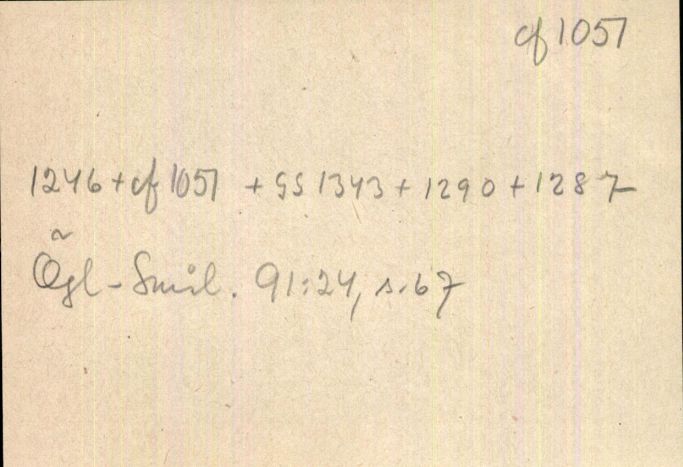 cf 1051
1246 + cf 1051 + SS 1343 + 1290 + 1287
Ögl-Smål. 91:24, s.67